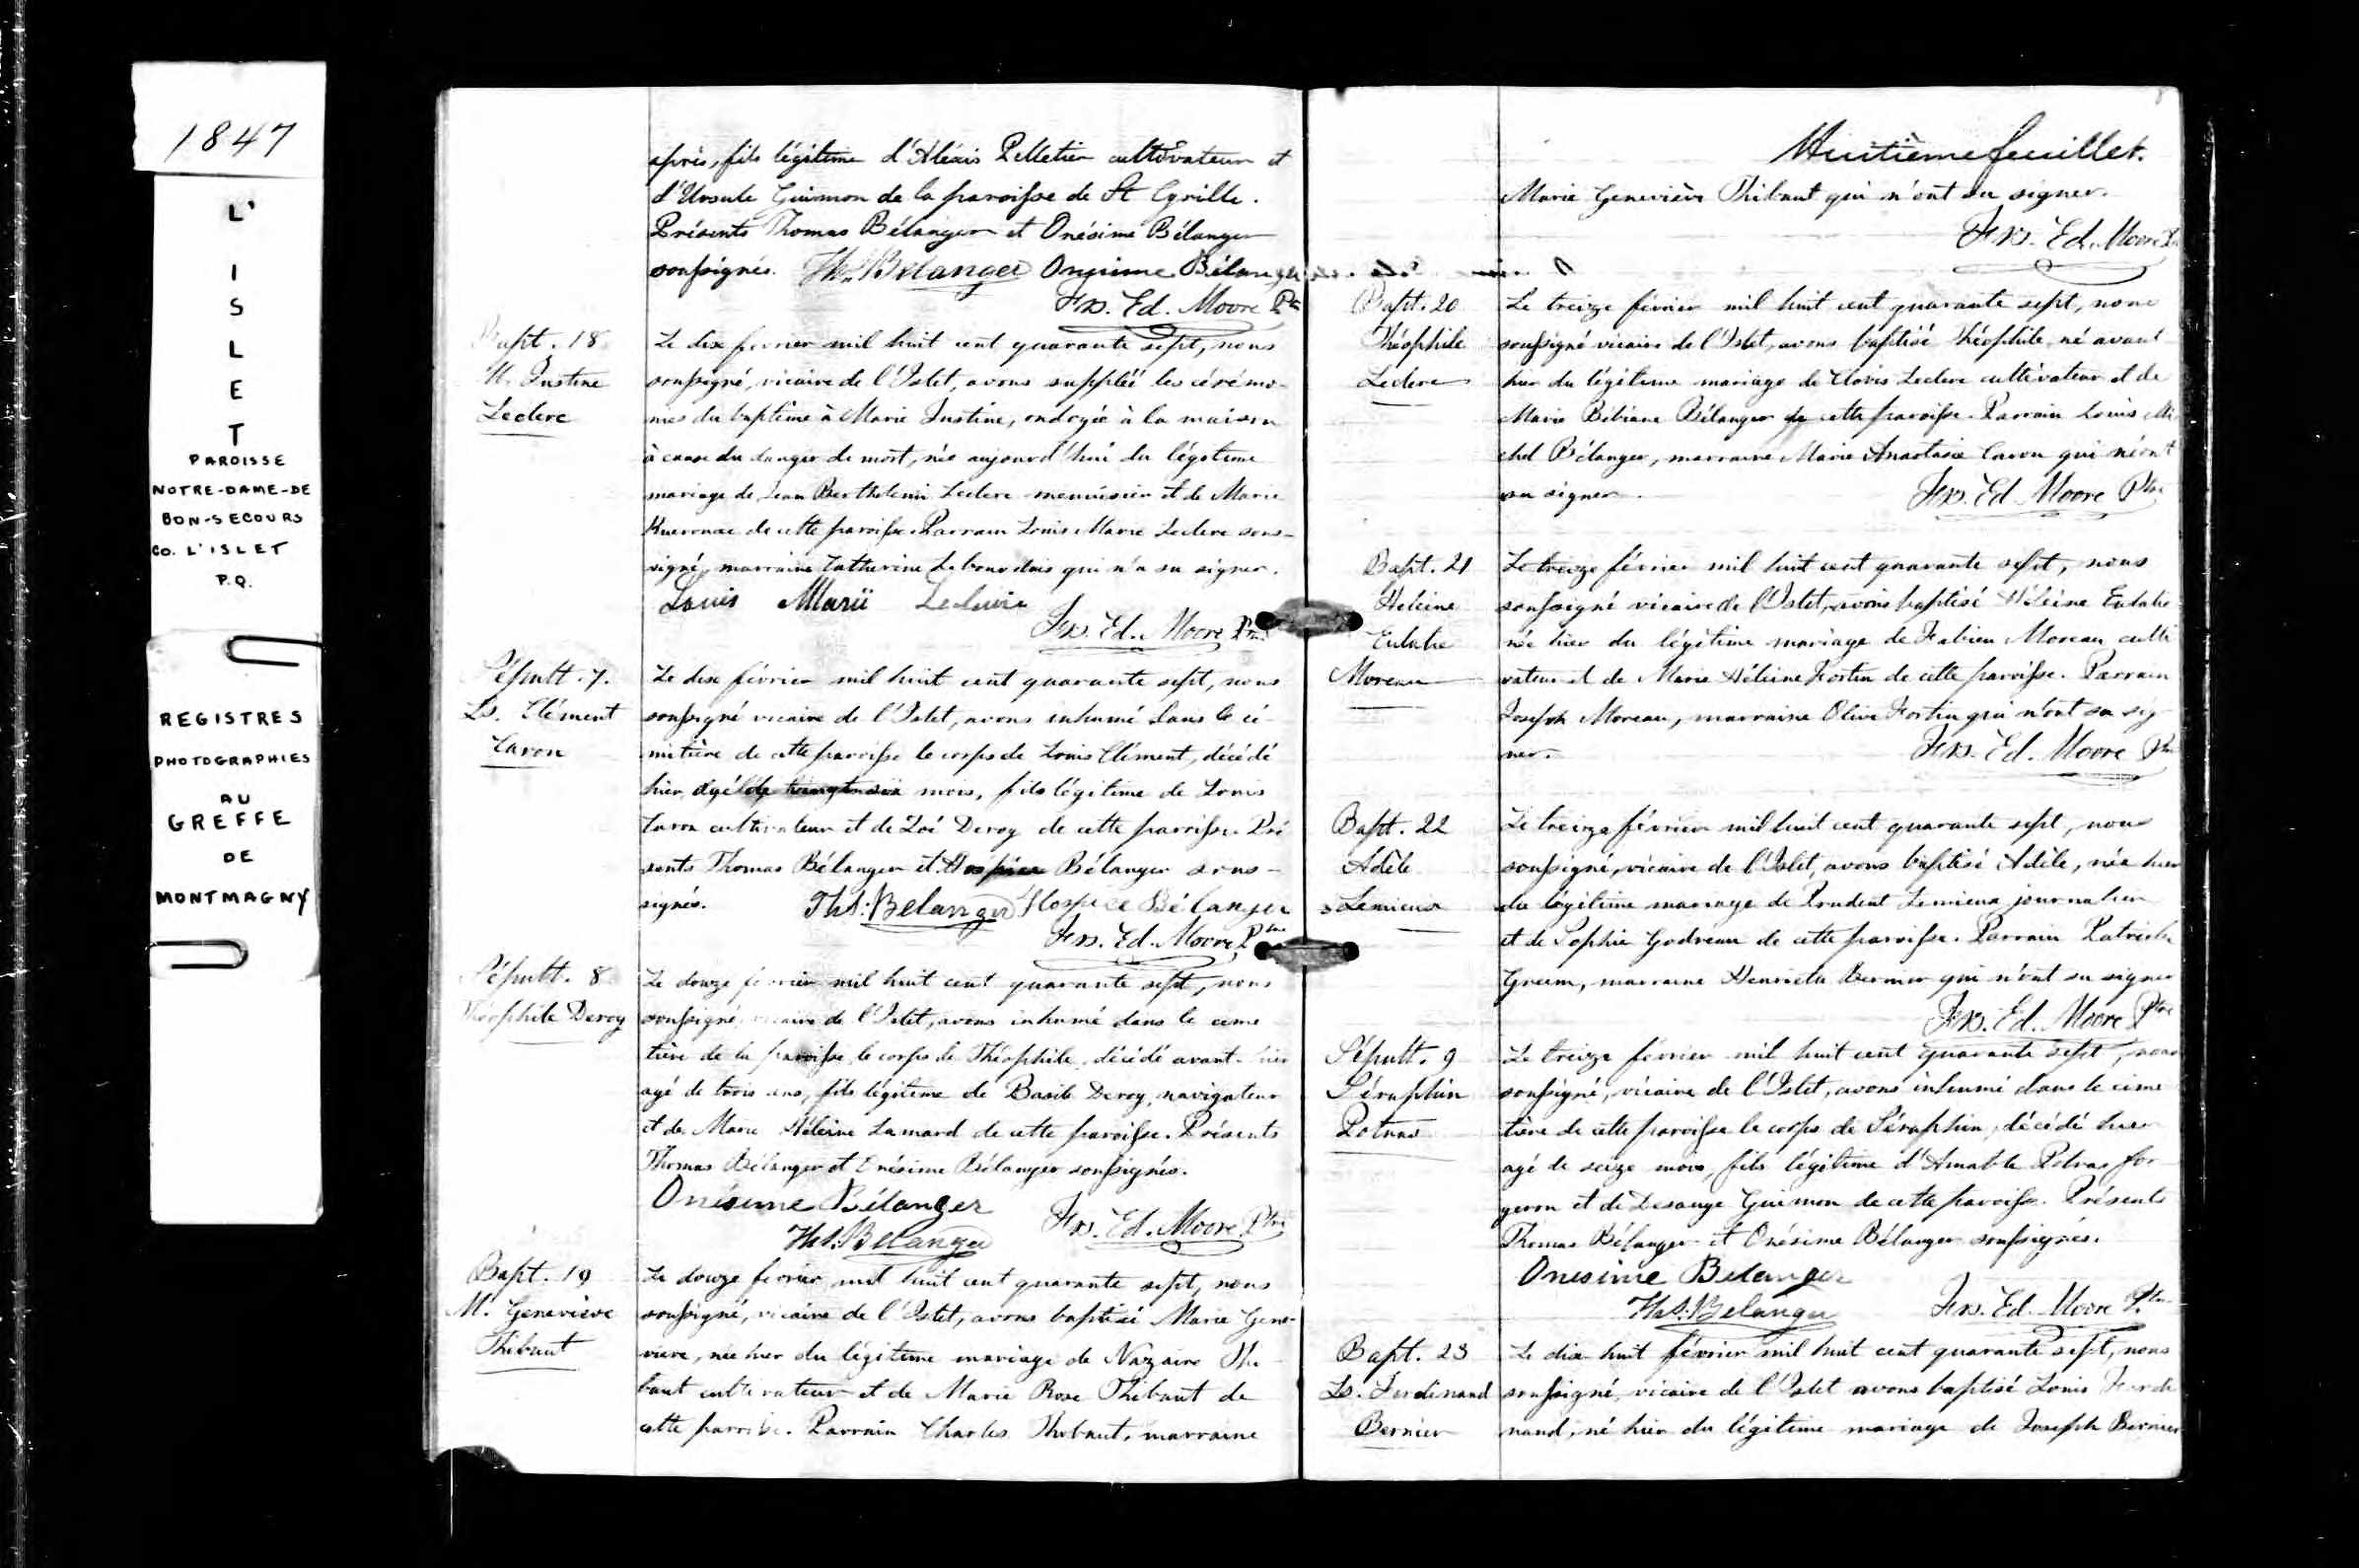 1847
L'
I
S
L
E
T
PAROISSE
NOTRE-DAME-DE
BON-SECOURS
CO. L'ISLET
P.Q.
REGISTRES
PHOTOGRAPHIES
AU
GREFFE
DE
MONTMAGNY
après, fils légitime d'Aléxis Pelletier cultivateur et
d'Ursule Guimon de la paroisse de St Cyrille.
Présents Thomas Bélanger et Onésime Bélanger
soussignés. Ths. Bélanger Onésime Bélanger
Frs. Ed. Moore Ptre
Bapt. 18
M. Justine
Leclerc
Le dix février mil huit cent quarante sept, nous
soussigné, vicaire de l'Islet, avons suppléé les cérémo-
nies du baptême à Marie Justine, ondoyée à la maison
à cause du danger de mort, née aujourd'hui du légitime
mariage de Jean Berthelemi Leclerc menuisier et de Marie
de cette paroisse. Parrain Louis Marie Leclerc sous-
signé, marraine Catherine Lebourdais qui n'a su signer.
Louis Marie
Frs. Ed. Moore Ptre
Sépult. 7.
Ls. Clément
Caron
Le dix février mil huit cent quarante sept, nous
soussigné vicaire de l'Islet, avons inhumé dans le ci-
mitière de cette paroisse le corps de Louis Clément, décédé
hier, âgé de mois, fils légitime de Louis
Caron cultivateur et de Zoé Deroy de cette paroisse. Pré
sents Thomas Bélanger et Hospice Bélanger sous-
signés. Ths. Belanger Hospice Bélanger
Frs. Ed. Moore, Ptre
Sépult. 8
Théophile Deroy
Le douze février mil huit cent quarante sept, nous
soussigné vicaire de l'Islet, avons inhumé dans le cime
tière de la paroisse le corps de Théophile, décédé avant-hier
agé de trois ans, fils légitime de Basile Deroy, navigateur
et de Marie Héleine Lamard de cette paroisse. Présents
Thomas Bélanger et Onésime Bélanger soussignés.
Onésime Bélanger
Ths. Belanger Frs. Ed. Moore Ptre
Bapt. 19
M. Geneviève
Thibaut
Le douze février mil huit cent quarante sept, nous
soussigné, vicaire de l'Islet, avons baptisé Marie Gene-
vieve, née hier du légitime mariage de Nazaire Thi-
baut cultivateur et de Marie Rose Thibaut de
cette paroisse. Parrain Charles Thibaut, marraine
Huitième feuillet.
Marie Geneviève Thibaut qui n'ont su signer.
Frs. Ed. Moore Ptre
Bapt. 20
Théophile
Leclerc
Le treize février mil huit cent quarante sept, nous
soussigné vicaire de l'Islet, avons baptisé Théophile, né avant
hier du légitime mariage de Clovis Leclerc cultivateur et de
Marie Bibiane Bélanger de cette paroisse. Parrain Louis Mi
chel Bélanger, marraine Marie Anastasie Caron qui n'ont
su signer. Frs. Ed. Moore Ptre
Bapt. 21
Héleine
Eulalie
Moreau
Le treize février mil huit cent quarante sept, nous
soussigné vicaire de l'Islet, avons baptisé Héleine Eulalie
née hier du légitime mariage de Fabien Moreau culti
vateur et de Marie Héleine Fortin de cette paroisse. Parrain
Joseph Moreau, marraine Olive Fortin qui n'ont su sig
ner. Frs. Ed. Moore Ptre
Bapt. 22
Adèle
Lemieux
Le treize février mil huit cent quarante sept, nous
soussigné, vicaire de l'Islet, avons baptisé Adèle, née hier
du légitime mariage de Prudent Lemieux journalier
et de Sophie Godreau de cette paroisse. Parrain
marraine Henriette Bernier qui n'ont su signer
Frs. Ed. Moore Ptre
Sépult. 9
Séraphin
Potvas
Le treize février mil huit cent quarante sept, nous
soussigné, vicaire de l'Islet, avons inhumé dans le cime
tière de cette paroisse le corps de Séraphin, décédé hier
agé de seize mois, fils légitime d'Amable Potvas for
geron et de Desange Guimon de cette paroisse. Présents
Thomas Bélanger et Onésime Bélanger soussignés.
Onesime Belanger
Ths. Belanger Frs. Ed. Moore Ptre
Bapt. 23
Ls. Ferdinand
Bernier
Le dix-huit février mil huit cent quarante sept, nous
soussigné, vicaire de l'Islet avons baptisé Louis Ferdi
nand, né hier du légitime mariage de Joseph Bernier